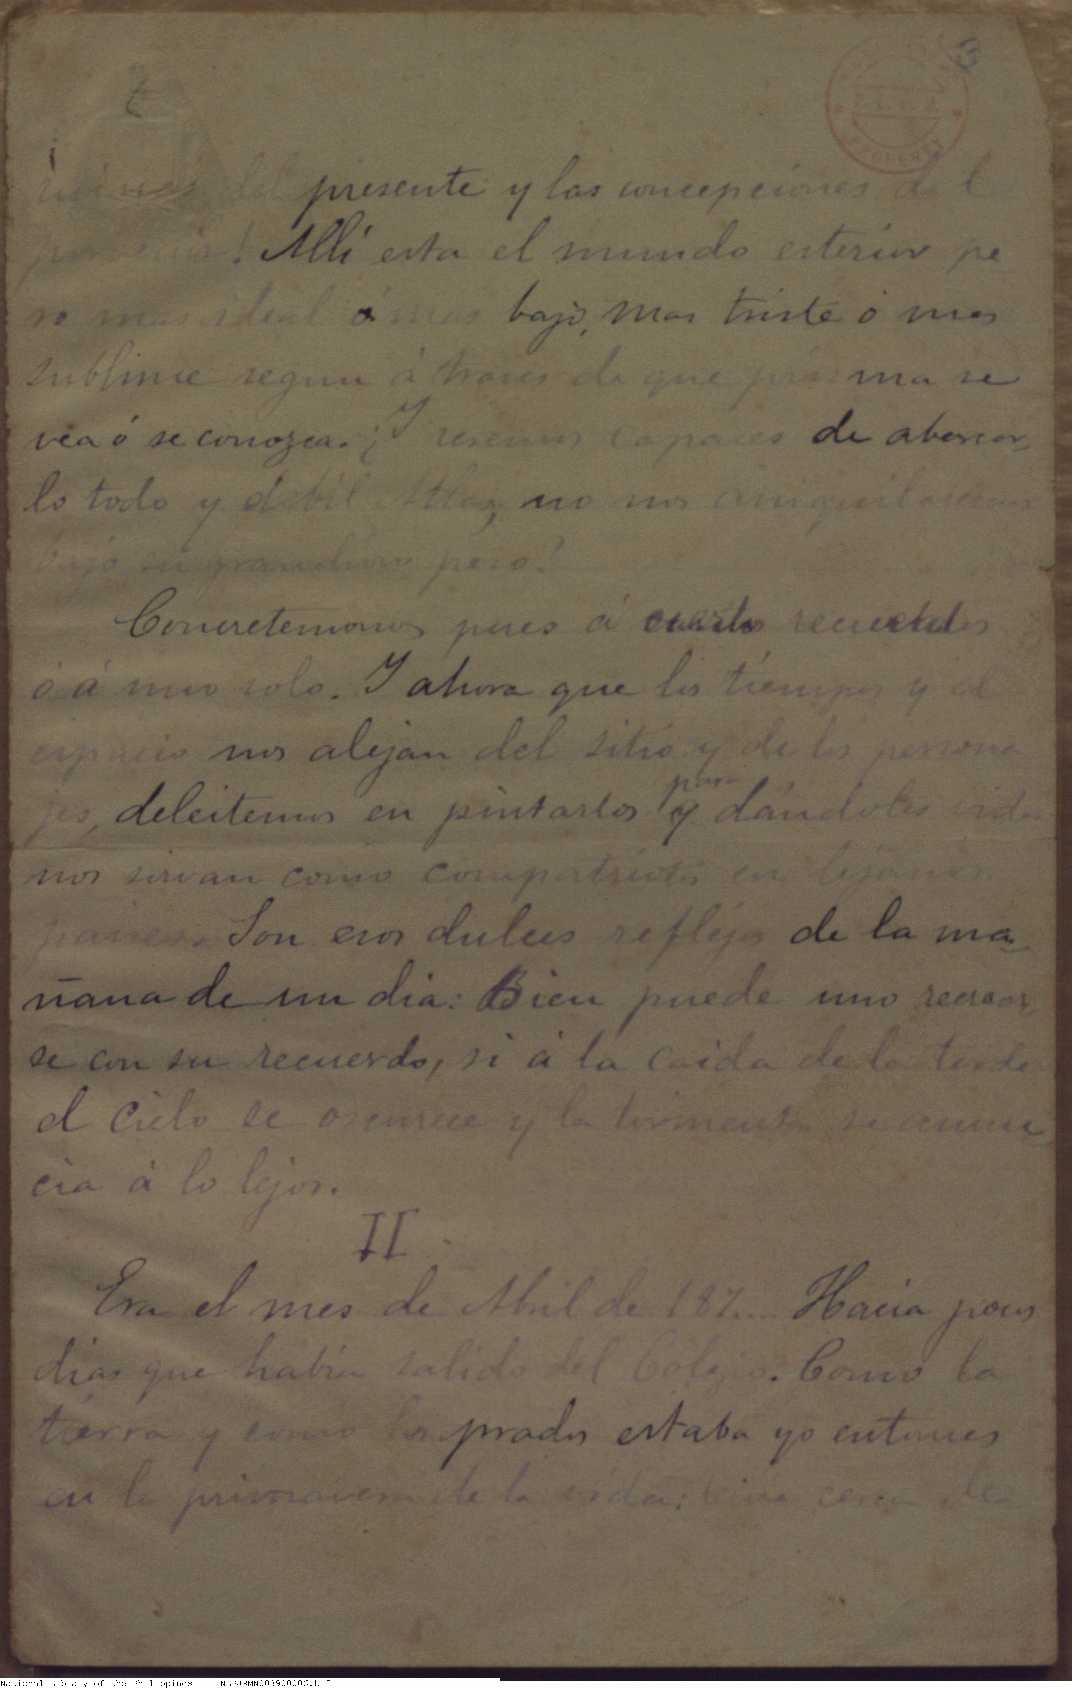 3
del presente y las concepciones del
porvenir! Allí esta el mundo esterior pe
ro mas ideal ó mas bajo, mas triste ó mas
sublime segun á traves de que prisma se
vea ó se conozca. ¿Y seremos capaces de abarcar-
lo todo y débil Atlas, no nos aniquilaremos
bajo su grandioso peso?
Concretemonos pues á ciertos recuerdos
ó á uno solo. Y ahora que los tiempos y el
espacio nos alejan del sitio y de los persona
jes, deleitemos en pintarlos y para dándoles vida
nos sirvan como compatriotas en lejanos
paises. Son esos dulces reflejos de la ma-
ñana de un dia: Bien puede uno recrear-
se con su recuerdo, si á la caida de la tarde
el cielo se oscurece y la tormenta se anun-
cia á lo lejos.
II
Era el mes de Abril de 187.... Hacia pocos
dias que había salido del Colegio. Como la
tierra y como los prados estaba yo entonces
en la primavera de la vida:
National Library of the Philippines